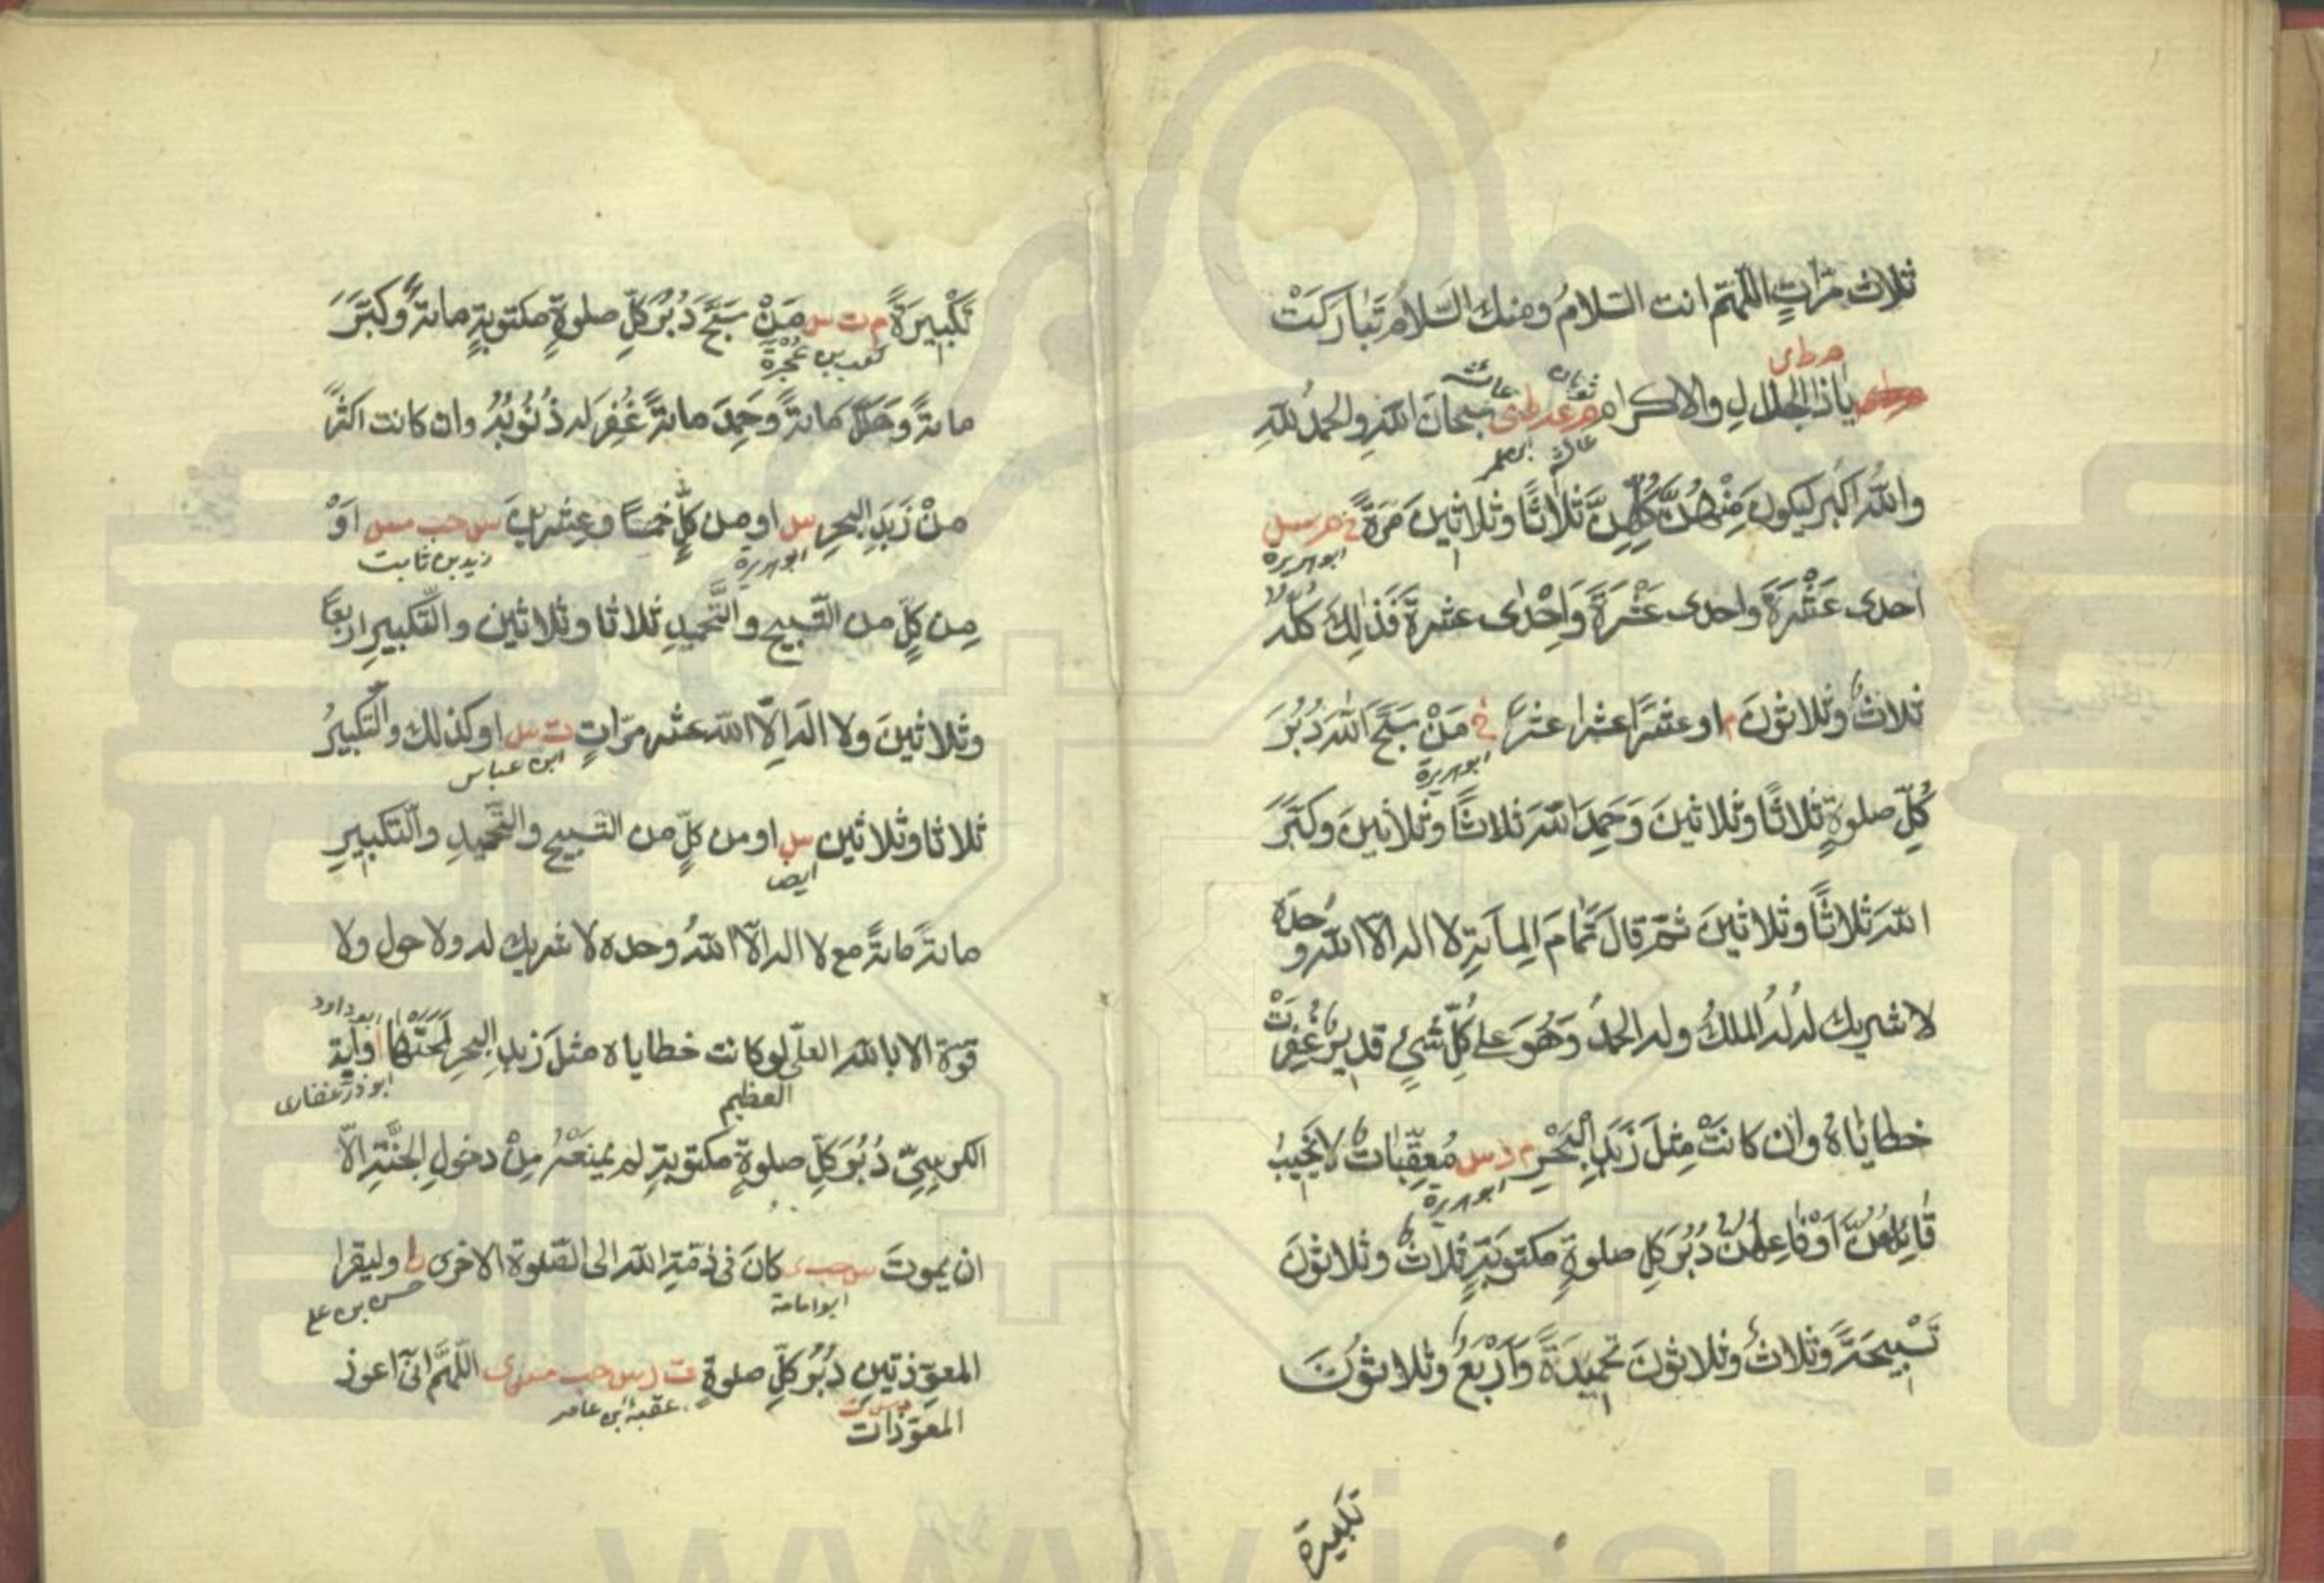 ثلاث مرّاتٍ اللّهمّ انت السّلامُ ومنك السّلامُ تَبَارَكتْ
مر ط ى
ياذا الجلالِ والاكرام مر عه ط ى سبحانَ اللهِ والحمدُ للهِ
ثوبان عائشة
ابن عمر
واللهُ اكبر ليكونَ مِنْهُنَّ كُلِّهِنَّ ثلاثًا وثلاثينَ مَرّةً خ مر س
ابوهريرة
احدى عَشْرَةَ واحدى عَشْرَةَ وَاِحْدٰى عشرةَ فَذٰلِكَ كلّه
ثلاثٌ وثلاثونَ م او عشرًا عشرا عشرًا خ مَنْ سَبَّحَ اللهَ دُبُرَ
ابوهريرة
كُلِّ صلوةٍ ثلاثًا وثلاثينَ وَحَمِدَ اللهَ ثلاثًا وثلاثينَ وكبَّرَ
اللهَ ثلاثًا وثلاثينَ ثمّ قالَ تَمامَ المِائةِ لا اله الّا اللهُ وحدَه
لا شريك له لهُ الملكُ وله الحمدُ وَهُوَ على كُلِّ شَيْءٍ قديرٌ غُفِرَتْ
خطاياهُ وان كانَتْ مِثلَ زَبَدِ البَحْرِ م د س مُعقِّبَاتٌ لا يَخِيبُ
ابوهريرة
قَائِلُهُنَّ اَوْ فَاعِلُهُنَّ دُبُرَ كلِّ صلوةٍ مكتوبَةٍ ثلاثٌ وثلاثونَ
تَسْبِيحَةً وثلاثٌ وثلاثونَ تحميدَةً وَاَرْبَعٌ وثلاثونَ
تكبيرة
تَكْبِيرَةً م ت س مَنْ سَبَّحَ دُبُرَ كلِّ صلوةٍ مكتوبةٍ مائةً وكَبَّرَ
كعب بن عُجْرَة
مائةً وهَلَّلَ مائةً وحَمِدَ مائةً غُفِرَ له ذُنُوبُهُ وان كانت اكثرَ
مِنْ زَبَدِ البحرِ س او من كلٍّ خمسًا وعِشرينَ س حب مس اَوْ
ابوهريرة زيد بن ثابت
مِن كلٍّ من التّسبيحِ والتَّحميدِ ثلاثا وثلاثين والتّكبيرِ اربعًا
وثلاثينَ ولا الهَ اِلّا الله عشر مرّاتٍ ت س او كذلك والتّكبيرُ
ابن عباس
ثلاثا وثلاثين س او من كلٍّ من التّسبيحِ والتّحميدِ والتّكبيرِ
ايضا
مائةً مائةً مع لا اله الّا اللهُ وحده لا شريك له ولا حول ولا
قوّة الا بالله العليّ لو كانت خطاياه مثلَ زبدِ البحرِ لمحتْهَا ا واية
العظيم
ابوذر غفارى
الكرسيِّ دُبُرَ كلِّ صلوةٍ مكتوبةٍ لم يمنعْهُ مِنْ دخولِ الجنَّةِ الّا
ان يموتَ س حب ى كانَ فى ذمّةِ الله الى الصّلوة الاخرى ط وليقرا
ابوامامة حسن بن على
المعوّذتينِ دُبُرَ كلِّ صلوةٍ ت د س حب مس ى اللّهمَّ انّى اعوذ
المعوّذات
عقبة بن عامر